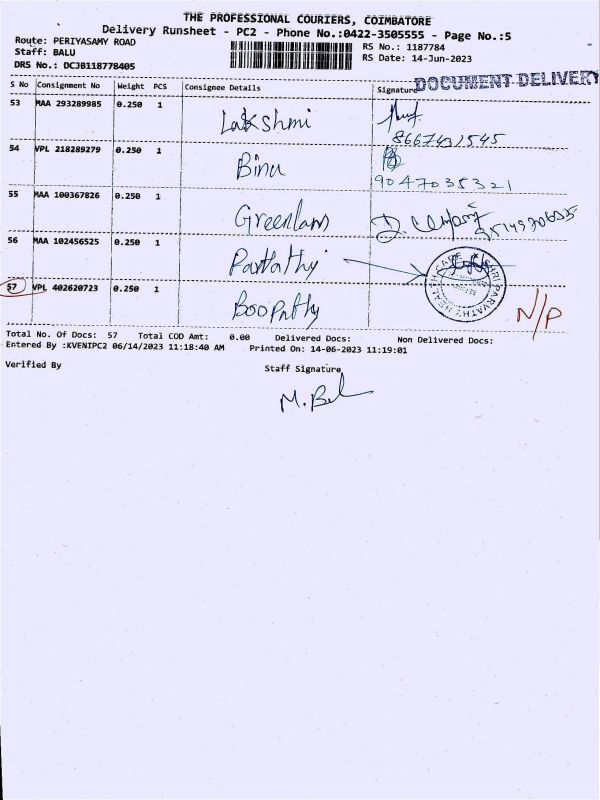 THE PROFESSIONAL COURIERS, COIMBATORE
Delivery Runsheet - PC2 - Phone No.:0422-3505555 - Page No.:5
Route: PERIYASAMY ROAD
RS No.: 1187784
Staff: BALU
RS Date: 14-Jun-2023
DRS No.: DCJB118778405
DOCUMENT DELIVERY
S No Consignment No Weight PCS Consignee Details Signature
53 MAA 293289985 0.250 1 Lakshmi
8667431545
54 VPL 218289279 0.250 1 Binu
9047035321
55 MAA 100367826 0.250 1 Greenlam
56 MAA 102456525 0.250 1 Parvathy
57 VPL 402620723 0.250 1 Boopathy N/P
Total No. Of Docs: 57 Total COD Amt: 0.00 Delivered Docs: Non Delivered Docs:
Entered By :KVENIPC2 06/14/2023 11:18:40 AM Printed On: 14-06-2023 11:19:01
Verified By Staff Signature
M. Bal